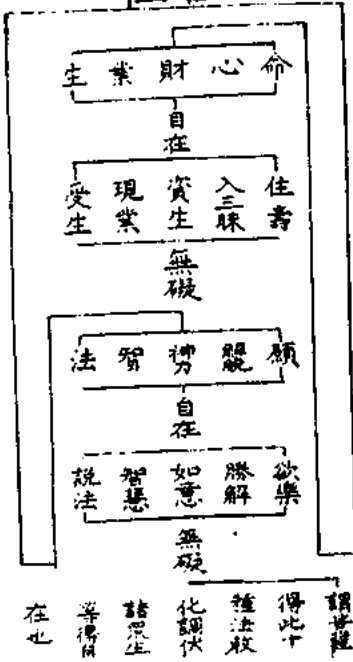 命 心 財 業 生
自在
住壽 入三昧 資生 現業 受生
無礙
願 解脫 神力 智 法
自在
欲樂 勝解 如意 智慧 說法
無礙
得此十
種法故
化調伏
諸眾生
在也